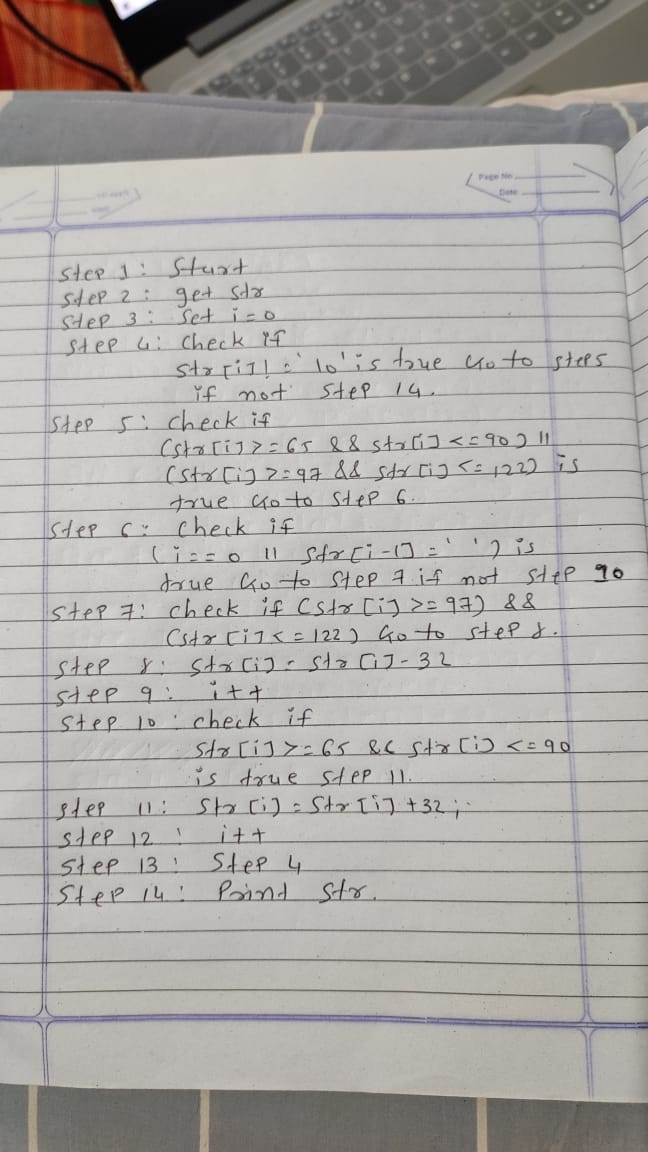 Page No.
Date
Step 1: Start
Step 2: get str
Step 3: Set i=0
Step 4: Check if
str[i]!='\0' is true Go to step5
if not step 14.
Step 5: Check if
(str[i]>=65 && str[i]<=90) ||
(str[i]>=97 && str[i]<=122) is
true Go to step 6.
Step 6: Check if
(i==0 || str[i-1]=' ') is
true Go to step 7 if not step 10
Step 7: check if (str[i]>=97) &&
(str[i]<=122) Go to step 8.
Step 8: str[i]=str[i]-32
Step 9: i++
Step 10: check if
str[i]>=65 && str[i]<=90
is true step 11.
Step 11: Str[i]=Str[i]+32;
Step 12: i++
Step 13: Step 4
Step 14: Print str.